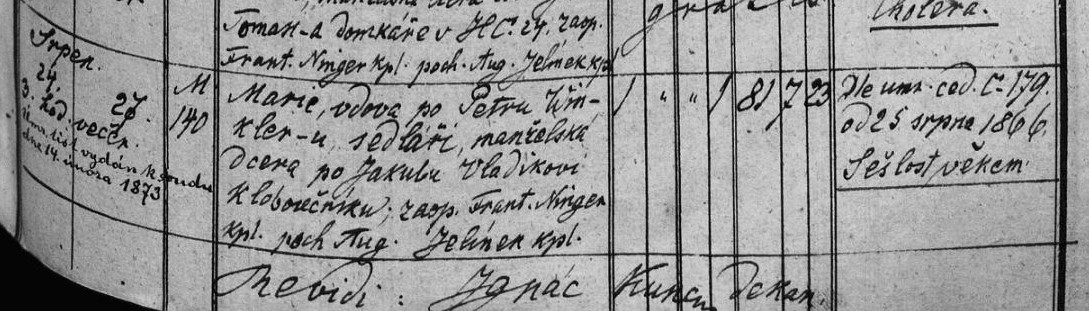 Toman-a domkáře v H.Č. 24. zaop.
Frant. Ninger kpl. poch. Aug. Jelínek kpl
Cholera.
Srpen.
24. 27.
3. hod. večer.
úmr. list vydán k soudu
dne 14. února 1873
M
140
Marie, vdova po Petru Win-
kler-u, sedláři, manželská
dcera po Jakubu Vladíkovi
Kloboučníku; zaop. Frant. Ninger
kpl. poch Aug. Jelínek kpl.
1 " " 1 81 7 23
Dle umr. ced. Č. 179.
od 25. srpna 1866.
Sešlost věkem
Revidi: Ignác Děkan